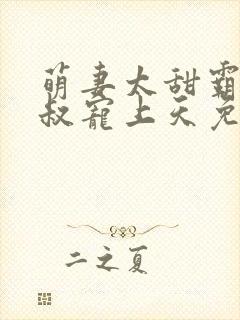 萌妻太甜霸
叔宠上天免
二之夏